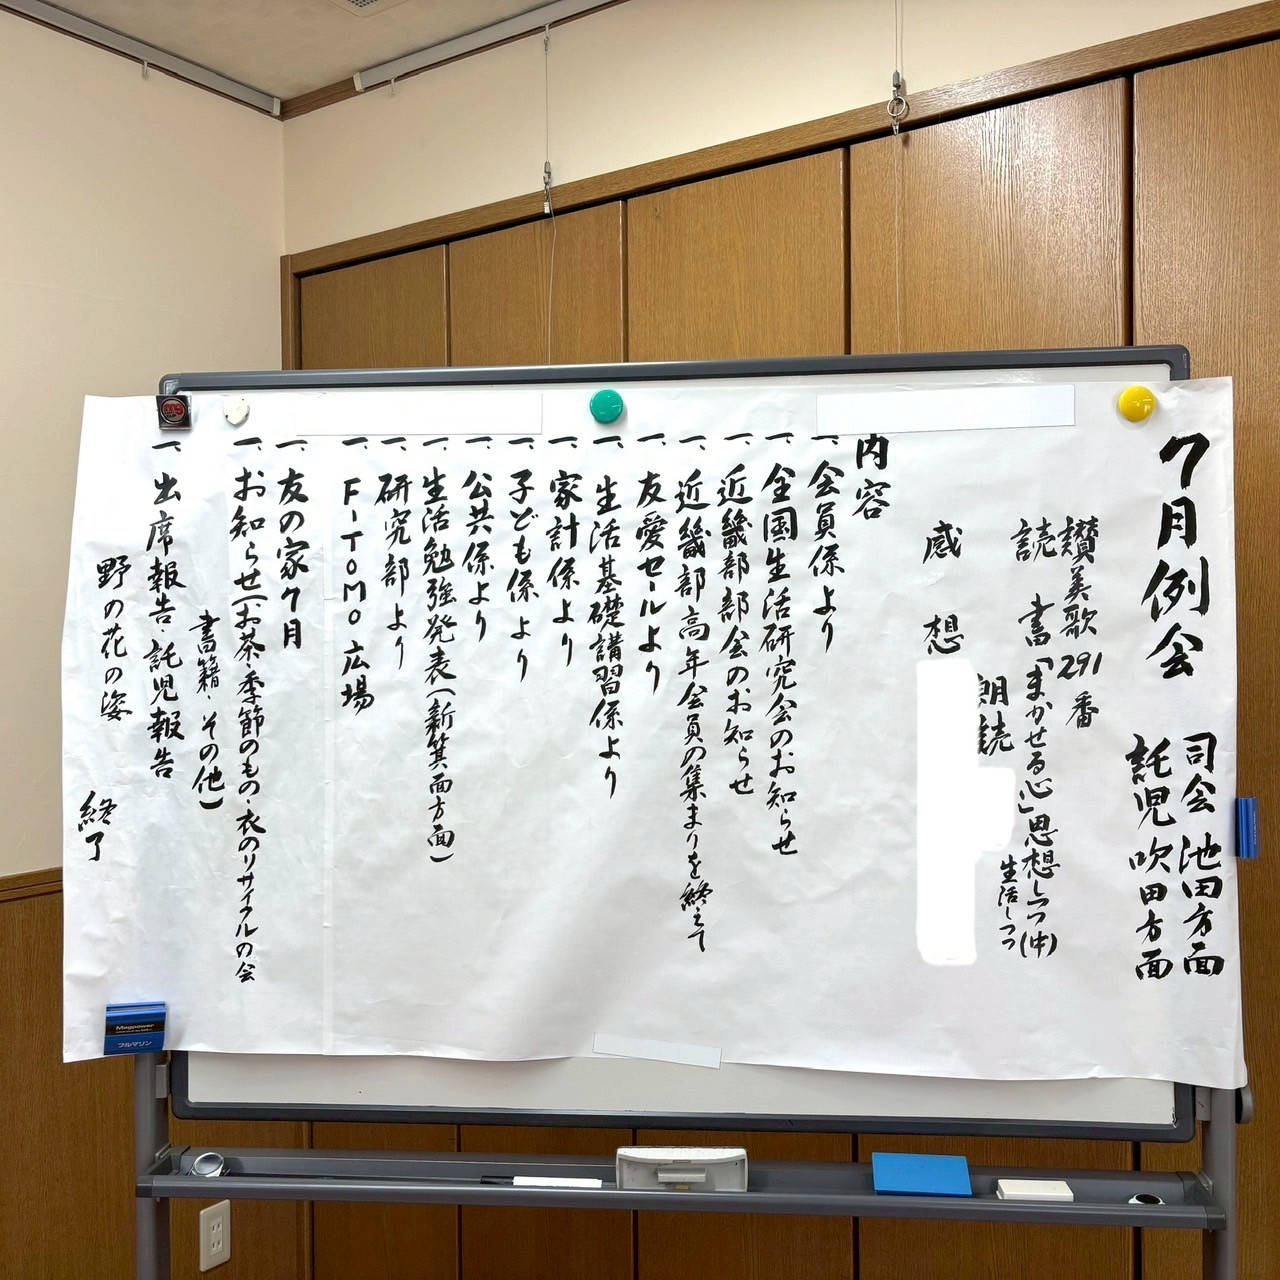 7月例会
司会 池田方面
託児 吹田方面
讃美歌 291番
読書「まかせる心」思想しつつ(中)
生活しつつ
朗読
感想
内容
一、会員係より
一、全国生活研究会のお知らせ
一、近畿部部会のお知らせ
一、近畿部高年会員の集まりを終えて
一、友愛セールより
一、生活基礎講習係より
一、家計係より
一、子ども係より
一、公共係より
一、生活勉強発表(新箕面方面)
一、研究部より
一、F-TOMO広場
一、友の家7月
一、お知らせ(お茶・季節のもの・衣のリサイクルの会
書籍・その他)
一、出席報告・託児報告
野の花の姿
終了
mg
Magpower
フルマリン